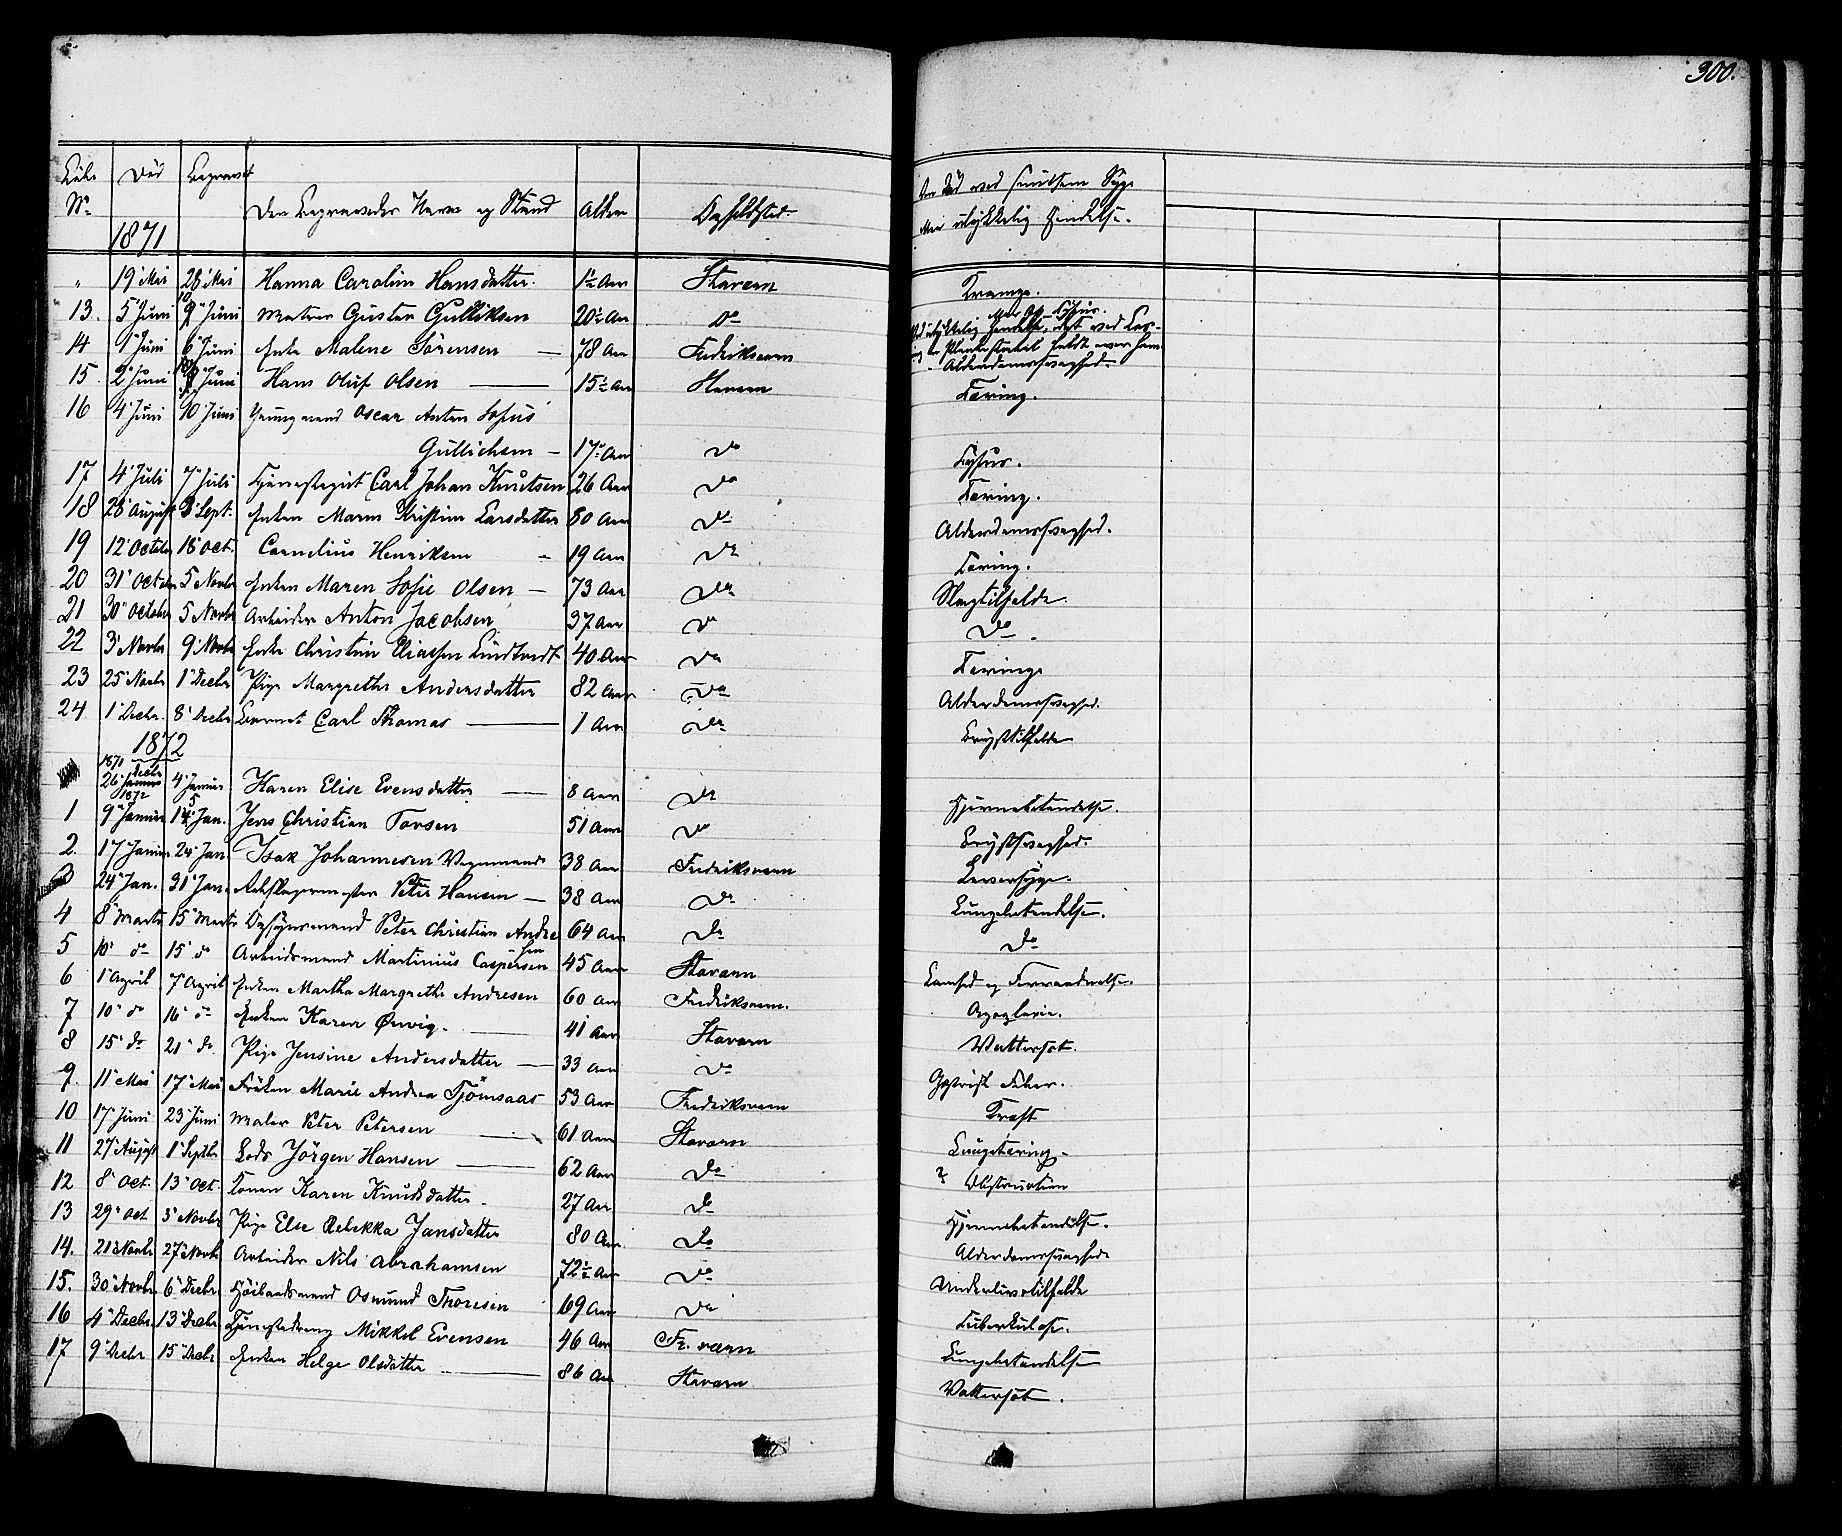 300.
Löbe Död Begravet
No Den Begravedes Navn og Stand Alder Opholdssted Om Död ved smitsom Syge
1871 eller ulykkelig Hændelse.
" 19 Mai 28 Mai Hanna Caroline Hansdatter. 1½ Aar Stavern Krampe.
13. 5 Juni 9 Juni Matros Gustav Gulliksen 20½ Aar Do
14 1 Juni 6 Juni Enke Malene Sörensen — 78 Aar Fredriksværn Alderdomssvaghed.
15. 2 Juni Juni Hans Oluf Olsen — 15½ Aar Stavern Tæring.
16 4 Juni 10 Juni Ungmand Oscar Anton Sofus
Gullichsen — 17½ Aar Do Tyfus.
17 4 Juli 7 Juli Tjenestegut Carl Johan Knutsen 26 Aar Do Tæring.
18 28 August 3 Sept. Enken Maren Kristine Larsdatter 80 Aar Do Alderdomssvaghed.
19 12 October 18 Oct. Cornelius Henriksen 19 Aar Do Tæring.
20 31 October 5 Novbr Enken Maren Sofie Olsen — 73 Aar Do Slagtilfælde.
21 30 October 5 Novbr Arbeider Anton Jacobsen 37 Aar Do Do.
22 3 Novbr 9 Novbr Enke Christine Eliassen Lindtvedt 40 Aar Do Tæring
23 25 Novbr 1 Decbr Pige Margrethe Andersdatter 82 Aar Do Alderdomssvaghed.
24 1 Decbr. 8 Decbr Barnet Carl Thomas — 1 Aar Do Brysttilfælde
1872
1871 Decbr
26 Januar 4 Januar Karen Elise Evensdatter — 8 Aar Do Hjernebetændelse.
1872
1 9 Januar 14 Jan. Jens Christian Torsen 51 Aar Do Brystsvaghed.
2. 17 Januar 24 Jan. Isak Johannesen Vognmand 38 Aar Fredriksværn Leversyge.
3 24 Jan. 31 Jan. Peter Hansen — 38 Aar Do Lungebetændelse.
4 8 Marts 15 Marts Opsynsmand Peter Christian Andre 64 Aar Do Do
sen
5 10 do 15 do Arbeidsmand Martinius Caspersen 45 Aar Stavern
6 1 April 7 April Enken Martha Margrethe Andresen 60 Aar Fredriksværn. Apoplexie.
7 10 do 16 do Enken Karen Ørvig. — 41 Aar Stavern Vattersot.
8 15 do 21 do Pige Jensine Andersdatter — 33 Aar Do Gastrisk Feber.
9. 11 Mai 17 Mai Fröken Marie Andrea Tjömsaas 53 Aar Fredriksværn Kræft
10 17 Juni 23 Juni Maler Peter Petersen — 61 Aar Stavern Lungetæring.
11 27 August 1 Septbr Lods Jörgen Hansen — 62 Aar Do ? Obstruction
12 8 Oct. 13 Oct. Konen Karen Knudsdatter. 27 Aar Do Hjernebetændelse.
13 29 Oct 3 Novbr Pige Else Rebekka Jansdatter 80 Aar. Do Alderdomssvaghed
14. 21 Novbr 27 Novbr Arbeider Nils Abrahamsen 72½ Aar Do Underlivstilfælde
15. 30 Novbr 6 Decbr. Höibaadsmand Osmund Thoresen 69 Aar Do Tuberkulose.
16 4 Decbr. 13 Decbr Tjenestedreng Mikkel Evensen 46 Aar Fr. værn Lungebetændelse
17 9 Decbr 15 Decbr Enken Helge Olsdatter — 86 Aar Stavern Vattersot.